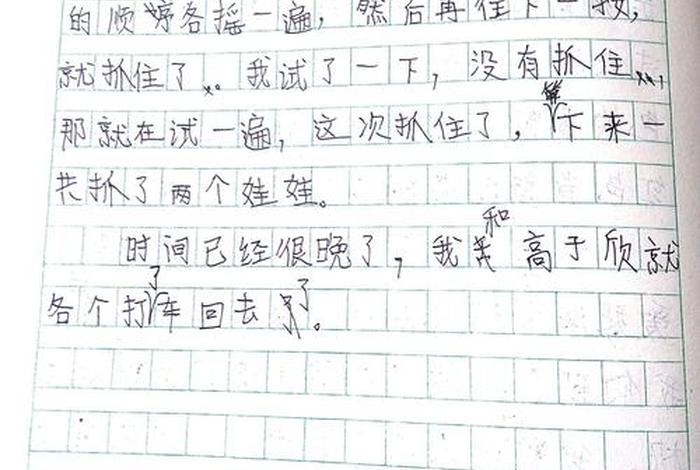 的顺序各摇一遍，然后再住下一按，
就抓住了。我试了一下，没有抓住……
那就在试一遍，这次抓住了，算下来一
共抓了两个娃娃。
时间已经很晚了，我和高于欣就
各个打了车回去了。